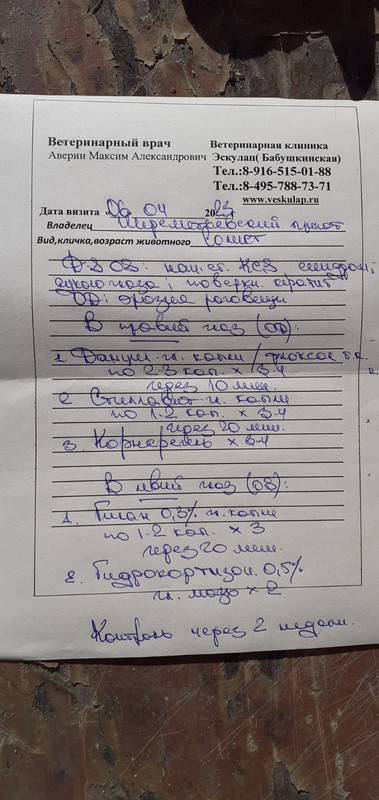 Ветеринарный врач
Аверин Максим Александрович
Ветеринарная клиника
Эскулап( Бабушкинская)
Тел.:8-916-515-01-88
Тел.:8-495-788-73-71
www.veskulap.ru
Дата визита 06 04 2023г
Владелец Шереметьевский приют
Вид,кличка,возраст животного
Ф-З OS: нач. ст. КСЗ синдром
сухого глаза; поверхн. кератит
OD: эрозия роговицы
В правый глаз (OD):
1. Данцил гл. капли / флоксал г.к.
по 2-3 кап. х 3-4
через 10 мин.
2. Стиллавит гл. капли
по 1-2 кап. х 3-4
через 20 мин.
3. Корнерегель х 3-4
В левый глаз (OS):
1. Гилан 0,3% гл. капли
по 1-2 кап. х 3
через 20 мин.
2. Гидрокортизон. 0,5%
гл. мазь х 2
Контроль через 2 недели.